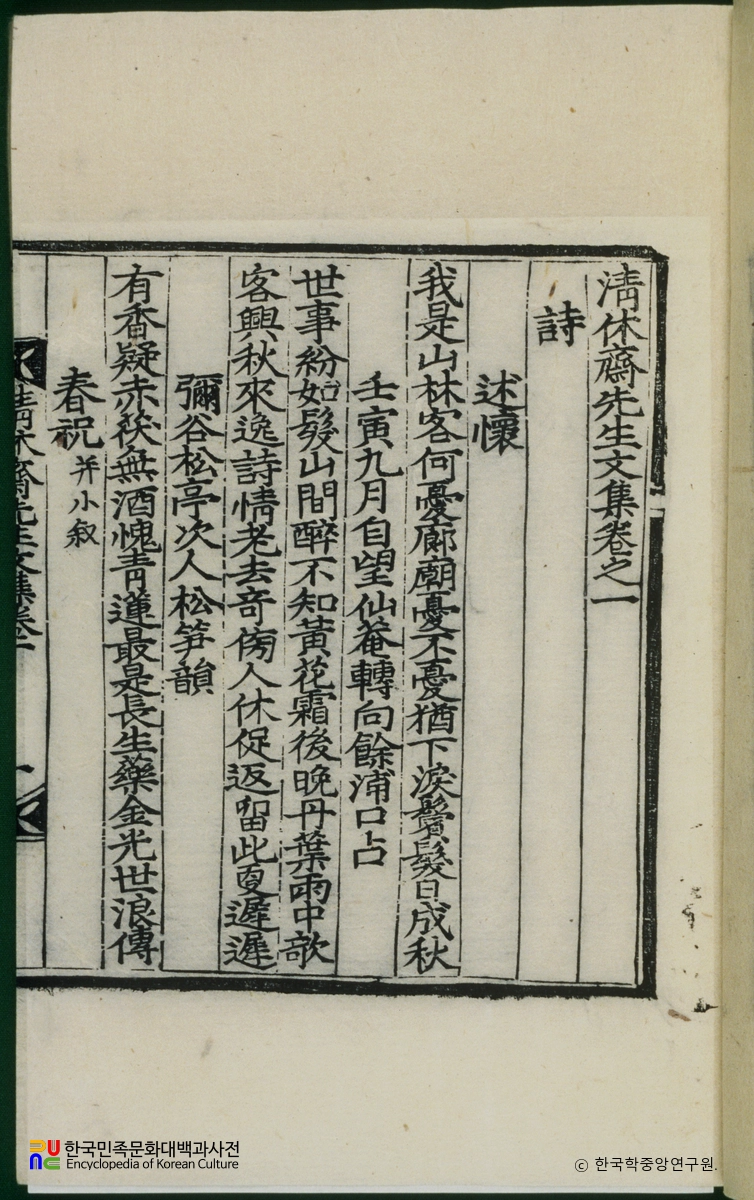 淸休齋先生文集卷之一
詩
述懷
我是山林客何憂廊廟憂不憂猶下淚鬢髮已成秋
壬寅九月自望仙菴轉向餘浦口占
世事紛如髮山間醉不知黃花霜後晚丹葉雨中欹
客興秋來逸詩情老去奇傍人休促返留此更遲遲
彌谷松亭次人松笋韻
有香疑赤茯無酒愧靑蓮最是長生藥金光世浪傳
春祝 并小叙
淸休齋先生文集卷一
一
한국민족문화대백과사전
Encyclopedia of Korean Culture
ⓒ 한국학중앙연구원.